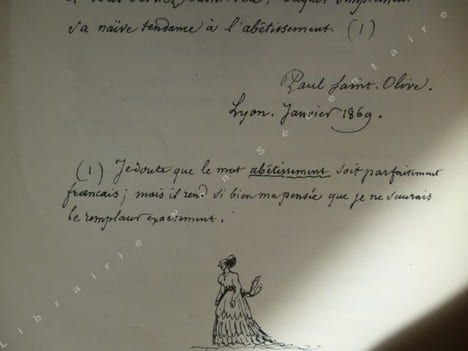 sa naïve tendance à l'abêtissement. (1)
Paul Saint-Olive.
Lyon. Janvier 1869.
(1) Je doute que le mot abêtissement soit parfaitement
français; mais il rend si bien ma pensée que je ne saurais
le remplacer exactement.
Librairie Secretaire